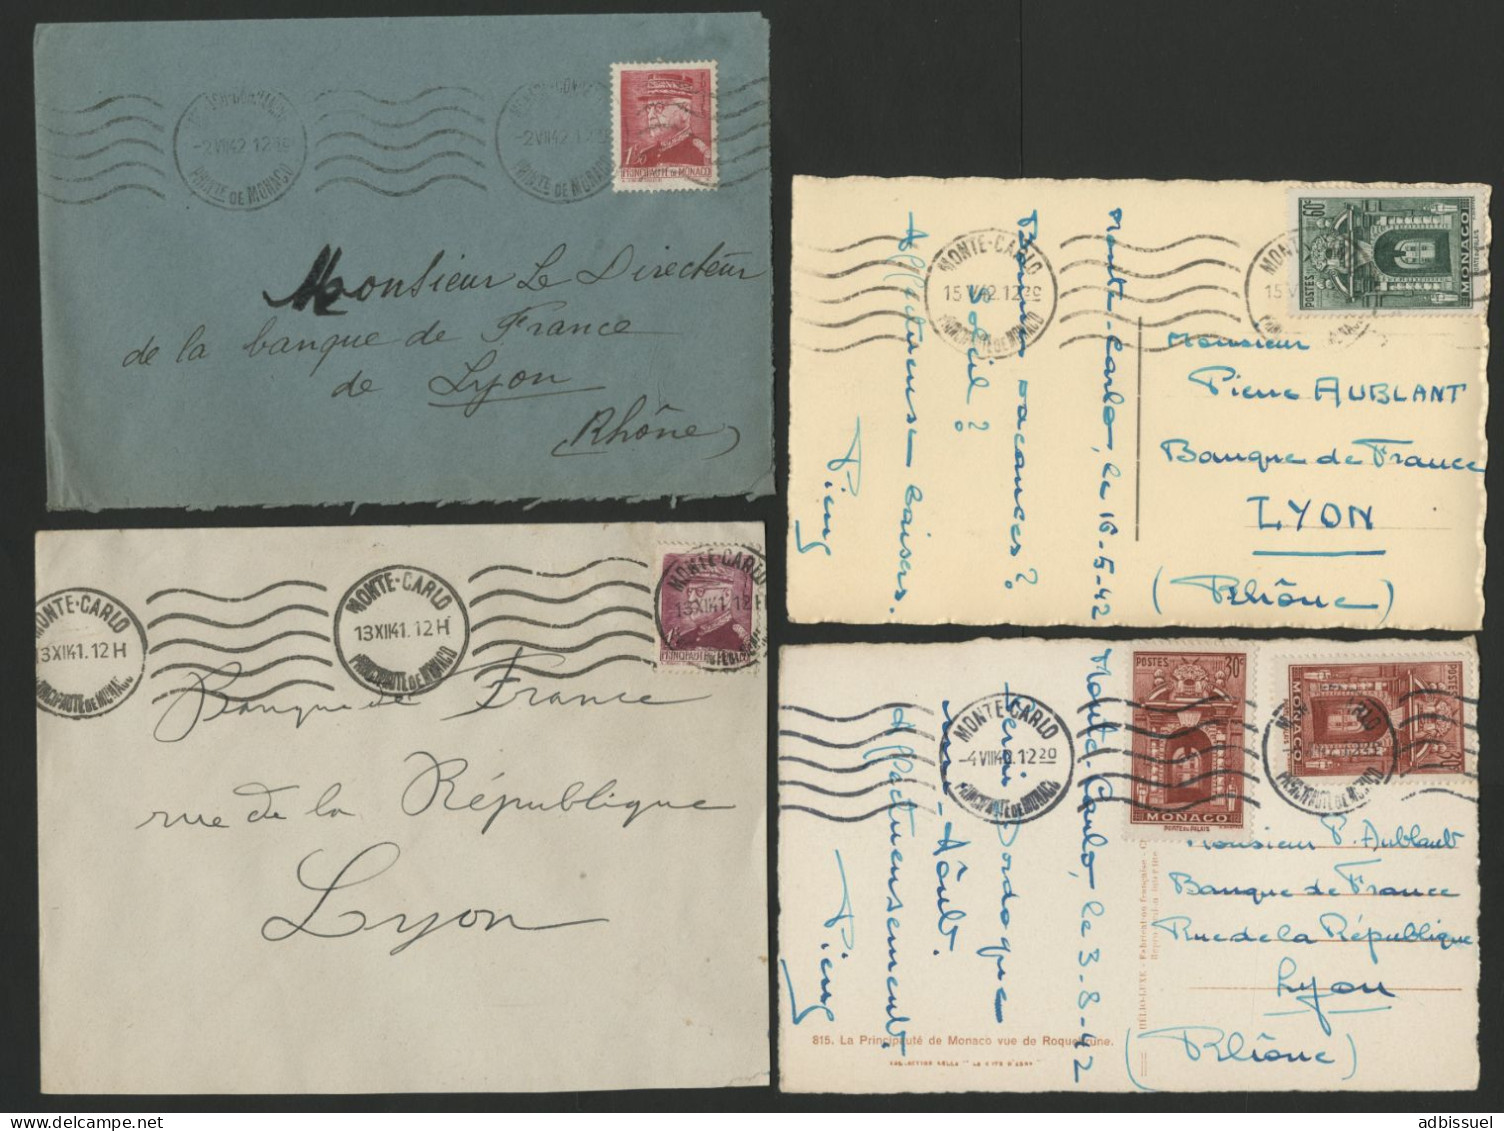 MONTE-CARLO
-2VII42.12
PRINCIPAUTÉ DE MONACO
PRINCIPAUTÉ DE MONACO
Monsieur Le Directeur
de la banque de France
de Lyon
Rhône
MONTE-CARLO
13XII41.12H
PRINCIPAUTÉ DE MONACO
MONTE-CARLO
13XII41.12H
PRINCIPAUTÉ DE MONACO
MONTE-CARLO
13XII41.12H
Banque de France
rue de la République
Lyon
60c
POSTES
MONACO
MONTE-CARLO
PRINCIPAUTÉ DE MONACO
Monte-Carlo, le 16-5-42
Bonnes vacances?
Soleil?
Affectueuse baisers.
Monsieur
Pierre AUBLANT
Banque de France
LYON
(Rhône)
POSTES 30c
MONACO
PORTE DU PALAIS
POSTES
30c
MONACO
MONTE-CARLO
12 20
PRINCIPAUTÉ DE MONACO
Monte-Carlo, le 3-8-42
Affectueusement.
Monsieur P. Aublant
Banque de France
Rue de la République
Lyon
(Rhône)
HÉLIO-LUXE - Fabrication française
815. La Principauté de Monaco vue de Roquebrune.
adbissuel